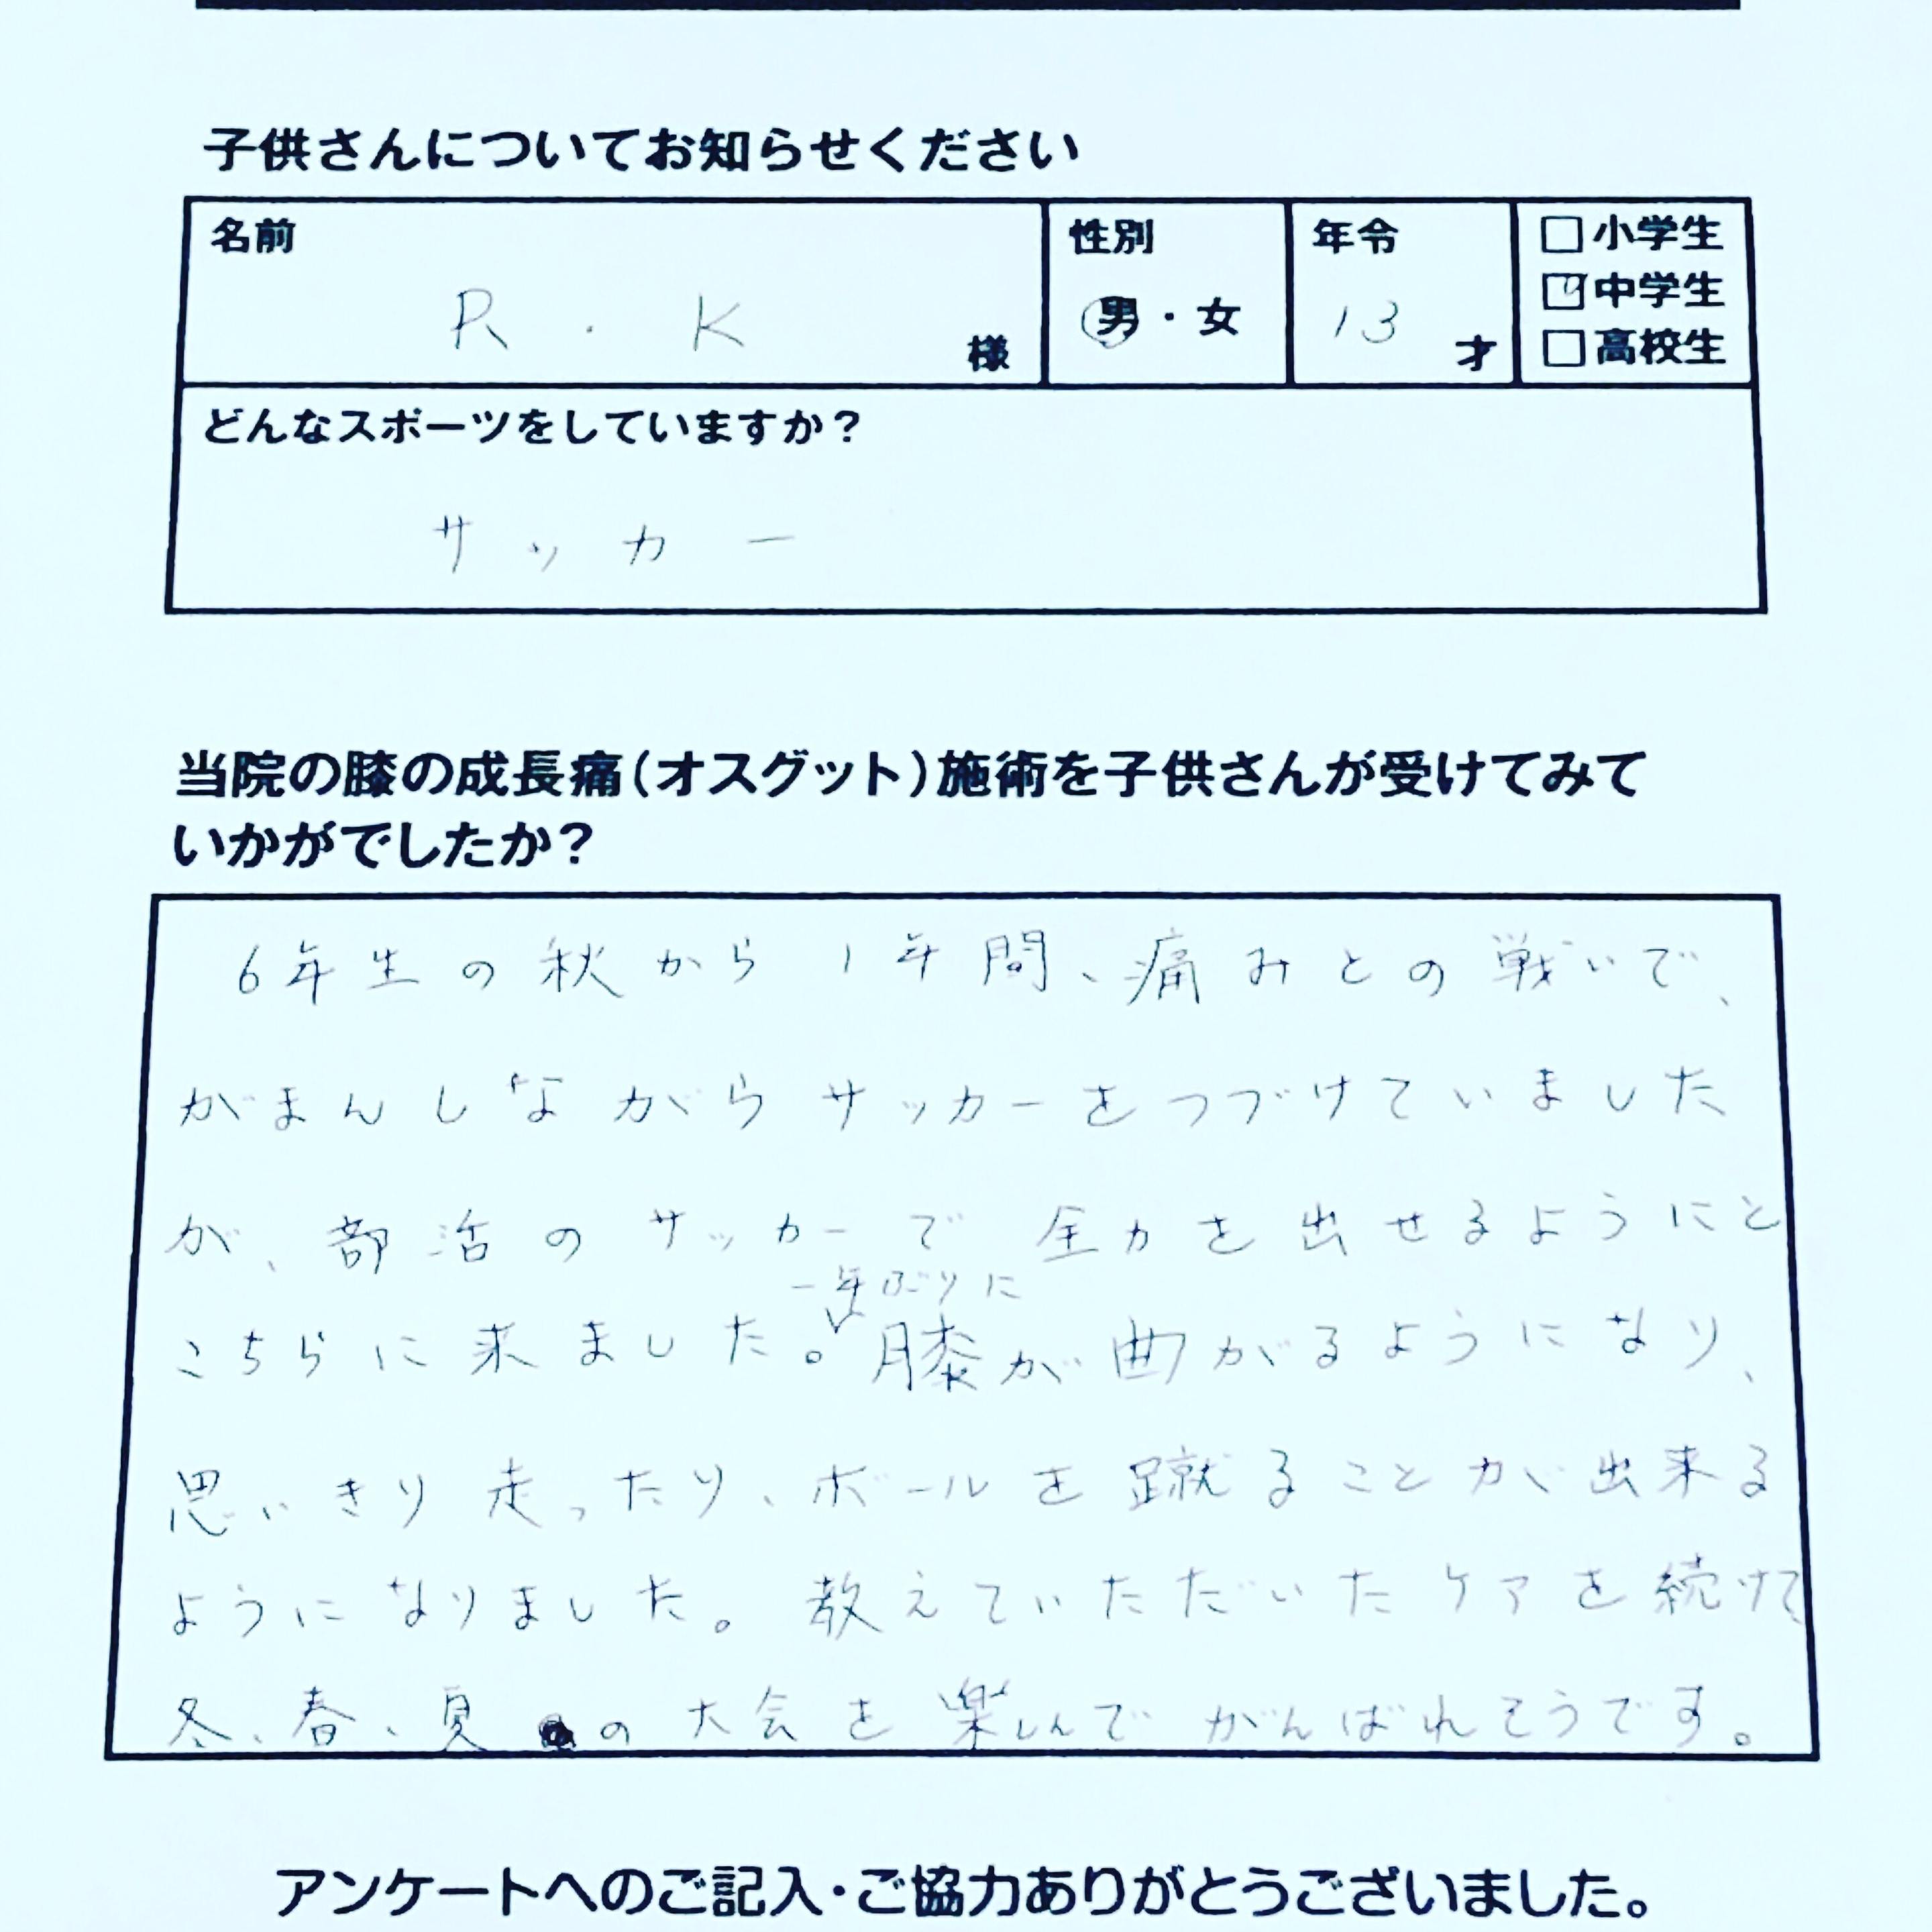 子供さんについてお知らせください
名前 性別 年令 □小学生
R・K 様 男・女 13才 ☑中学生
□高校生
どんなスポーツをしていますか？
サッカー
当院の膝の成長痛（オスグット）施術を子供さんが受けてみて
いかがでしたか？
6年生の秋から1年間、痛みとの戦いで、
がまんしながらサッカーをつづけていました
が、部活のサッカーで全力を出せるようにと
一年ぶりに
こちらに来ました。膝が曲がるようになり、
思いきり走ったり、ボールを蹴ることが出来る
ようになりました。教えていただいたケアを続けて
冬、春、夏の大会を楽しんでがんばれそうです。
アンケートへのご記入・ご協力ありがとうございました。